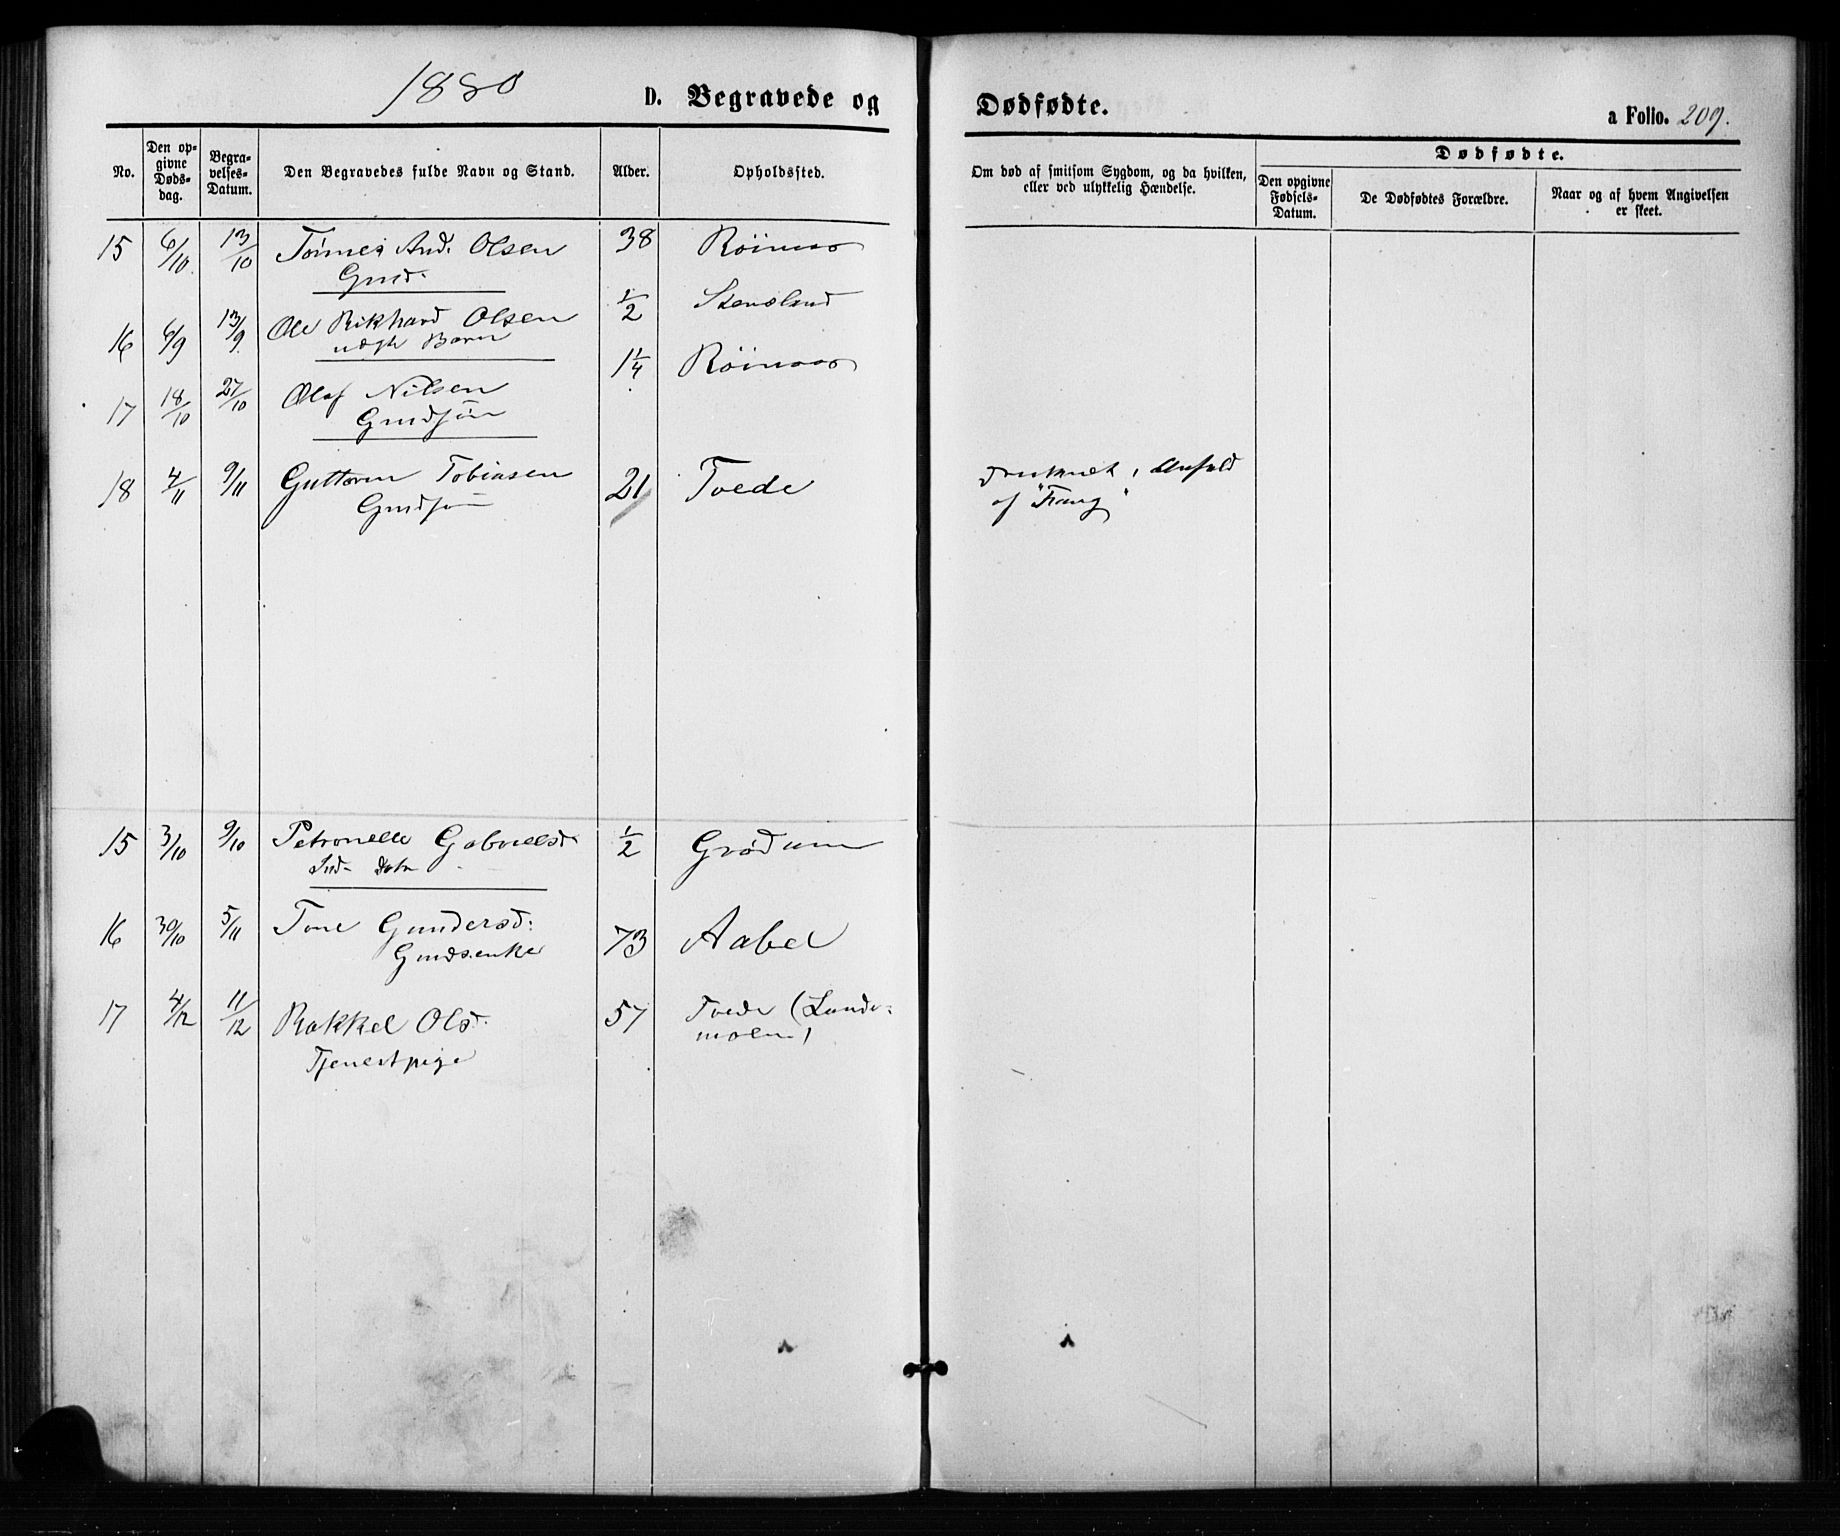 1880
D. Begravede og Dødfødte.
a Folio. 209.
No. Den opgivne Dødsdag. Begravelses-Datum. Den Begravedes fulde Navn og Stand. Alder. Opholdssted. Om død af smitsom Sygdom, og da hvilken, eller ved ulykkelig Hændelse. Dødfødte. Den opgivne Fødsels-Datum. De Dødfødtes Forældre. Naar og af hvem Angivelsen er skeet.
15 6/10 13/10 Tønnes And. Olsen 38
Gmd.
16 6/9 13/9 Ole Rikhard Olsen 1/2 Stensland
uægte Barn
17 18/10 27/10 Olaf Nilsen 1 1/4
Gmdsøn
18 4/11 9/11 Guttorm Tobiasen 21 Tvede druknet, Anfald
Gmdsøn af "Fang"
15 3/10 9/10 Petronelle Gabrielsd. 1/2 Grødum
Ind. Datr
16 30/10 5/11 Tone Gundersd. 73 Aabel
Gmdsenke
17 4/12 11/12 Rakkel Olsd. 57 Tvede (Lunde-
Tjenestpige moen)